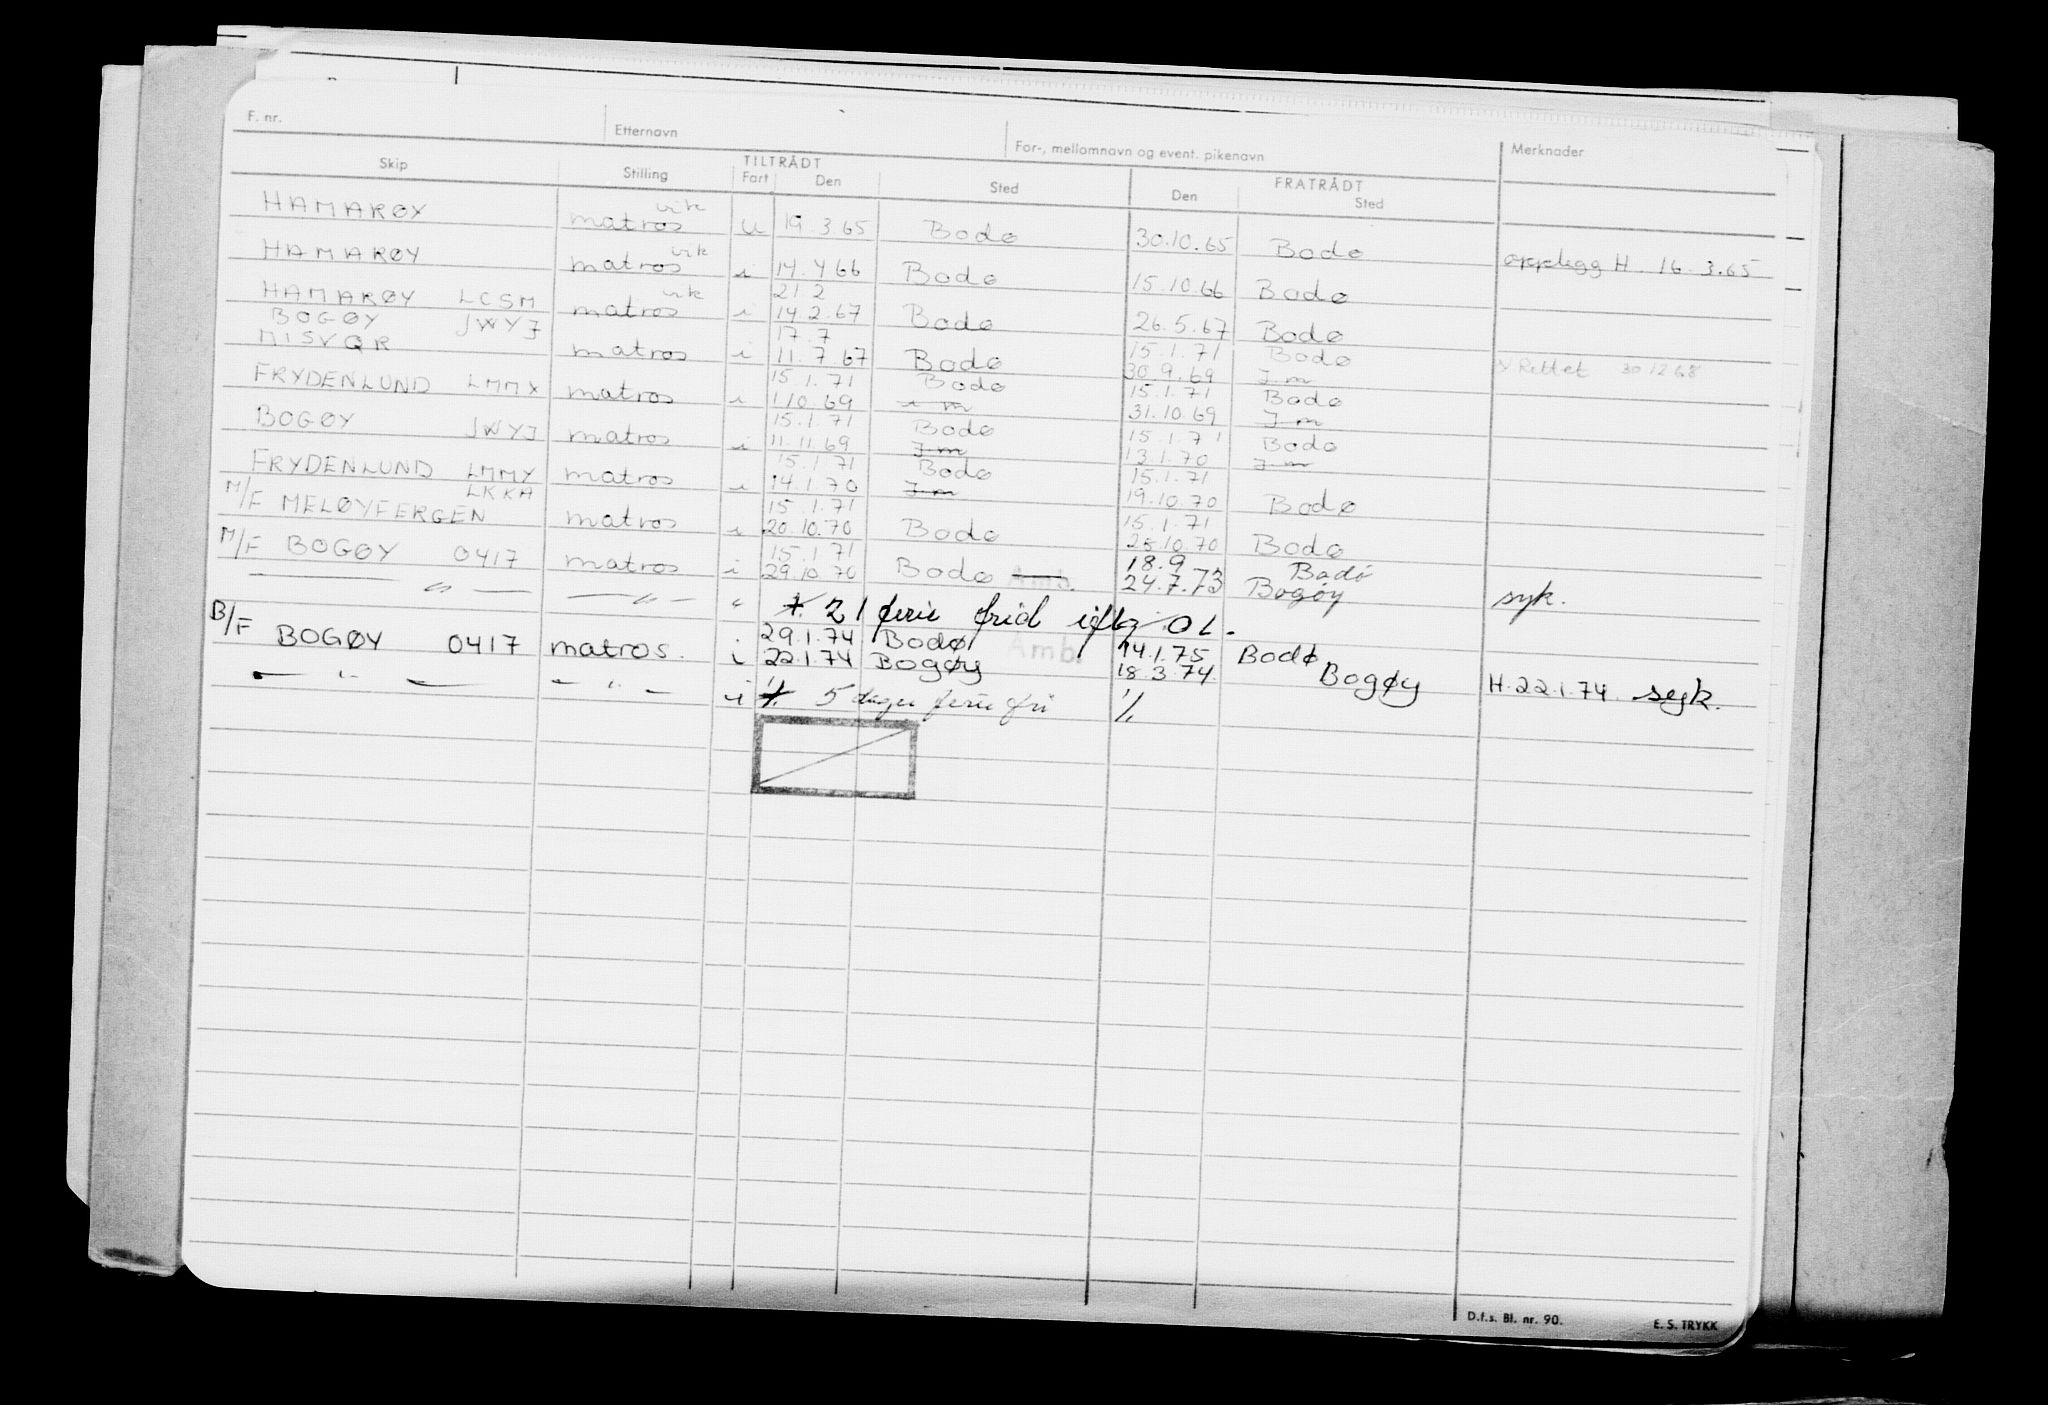 F. nr. Etternavn For-, mellomnavn og event. pikenavn Merknader
Skip Stilling TILTRÅDT FRATRÅDT
Fart Den Sted Den Sted
HAMARØY matros vik u 19.3.65 Bodø 30.10.65 Bodø opplegg H. 16.3.65
HAMARØY matros vik i 14.4.66 Bodø 15.10.66 Bodø
21 2
HAMARØY LCSM matros vik i 14.2.67 Bodø 26.5.67 Bodø
BOGØY JWYJ 17.7 15.1.71 Bodø
MISVÆR matros i 11.7.67 Bodø 30.9.69 I.m Rettet 30 12 68
15.1.71 Bodø 15.1.71 Bodø
FRYDENLUND LMMY matros i 1 10.69 i m 31.10.69 I m
15.1.71 Bodø 15.1.71 Bodø
BOGØY JWYJ matros i 11.11.69 I.m 13.1.70 I.m
15.1.71 Bodø 15.1.71
FRYDENLUND LMMY matros i 14.1.70 I m 19.10.70 Bodø
LKKA 15.1.71 15.1.71
M/F MELØYFERGEN matros i 20.10.70 Bodø 25.10.70 Bodø
15.1.71 18.9 Bodø
M/F BOGØY 0417 matros i 29.10.70 Bodø Amb. 24.7.73 Bogøy syk.
— " — — " — " 21 ferie frid iflg OL.
29.1.74 Bodø 14.1.75 Bodø
B/F BOGØY 0417 matros. i 22.1.74 Bogøy Amb. 18.3.74 Bogøy H.22.1.74. syk.
— " — — " — i 5 dager ferie fri
D.f.s. Bl. nr. 90. E. S. TRYKK